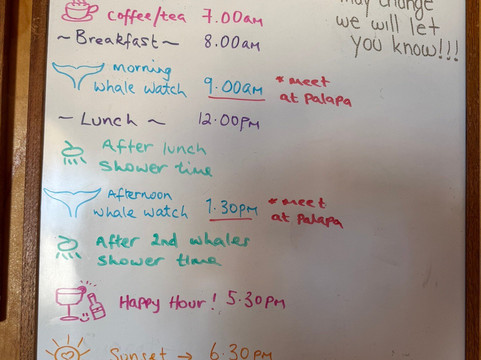 may change
we will let
you know!!!
Coffee/tea 7.00am
~Breakfast~ 8.00AM
morning
whale watch 9.00AM * meet
at Palapa
~ Lunch ~ 12.00PM
After lunch
shower time
Afternoon
whale watch 1.30PM * meet
at Palapa
After 2nd whales
shower time
Happy Hour! 5.30PM
Sunset → 6.30PM